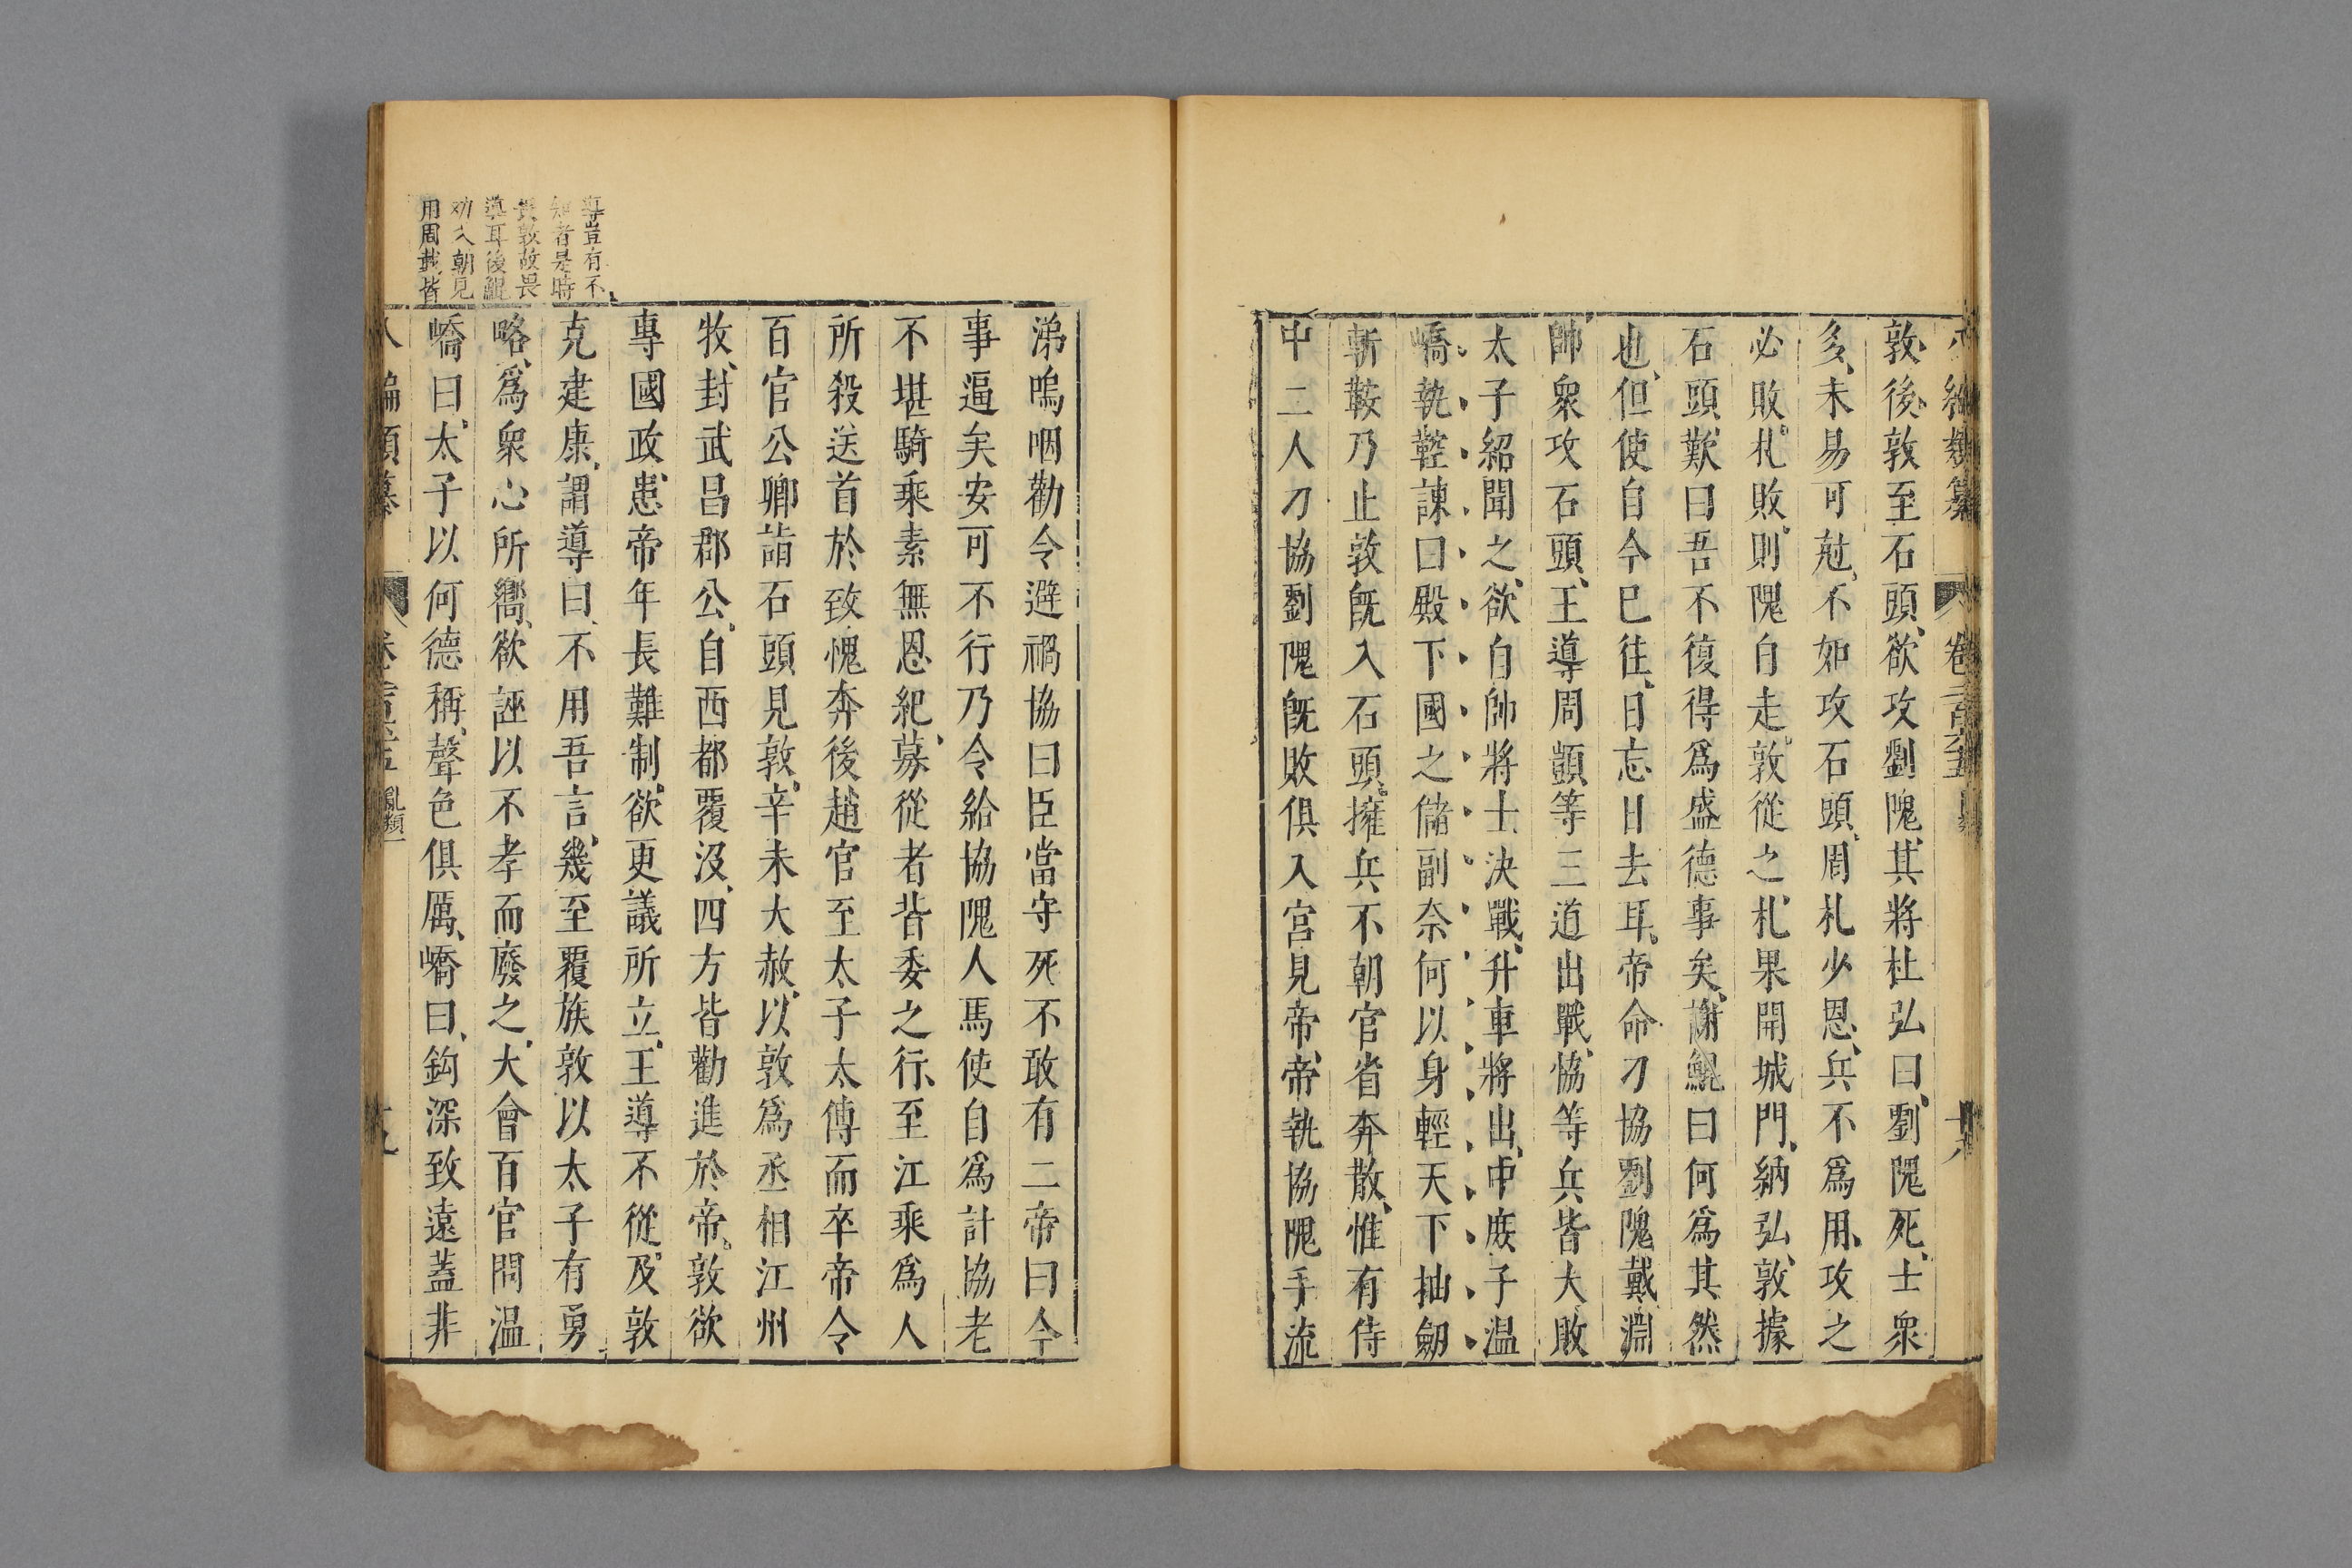 敦後敦至石頭欲攻劉隗其將杜弘曰劉隗死士衆
多未易可尅不如攻石頭周札少恩兵不爲用攻之
必敗札敗則隗自走敦從之札果開城門納弘敦據
石頭歎曰吾不復得爲盛德事矣謝鯤曰何爲其然
也但使自今已往日忘日去耳帝命刁協劉隗戴淵
帥衆攻石頭王導周顗等三道出戰協等兵皆大敗
太子紹聞之欲自帥將士決戰升車將出中庶子温
嶠執鞚諫曰殿下國之儲副奈何以身輕天下抽劒
斬鞍乃止敦既入石頭擁兵不朝官省奔散惟有侍
中二人刁協劉隗既敗俱入宮見帝帝執協隗手流
涕嗚咽勸令避禍協曰臣當守死不敢有二帝曰今
事逼矣安可不行乃令給協隗人馬使自爲計協老
不堪騎乘素無恩紀募從者皆委之行至江乘爲人
所殺送首於致愧奔後趙官至太子太傅而卒帝令
百官公卿詣石頭見敦辛未大赦以敦爲丞相江州
牧封武昌郡公自西都覆没四方皆勸進於帝敦欲
專國政患帝年長難制欲更議所立王導不從及敦
克建康謂導曰不用吾言幾至覆族敦以太子有勇
略爲衆心所嚮欲誣以不孝而廢之大會百官問温
嶠曰太子以何德稱聲色俱厲嶠曰鈎深致遠蓋非
導豈有不
知者是時
畏敦故畏
導耳後鯤
劝入朝見
用周戴皆
編類纂 卷 亂類